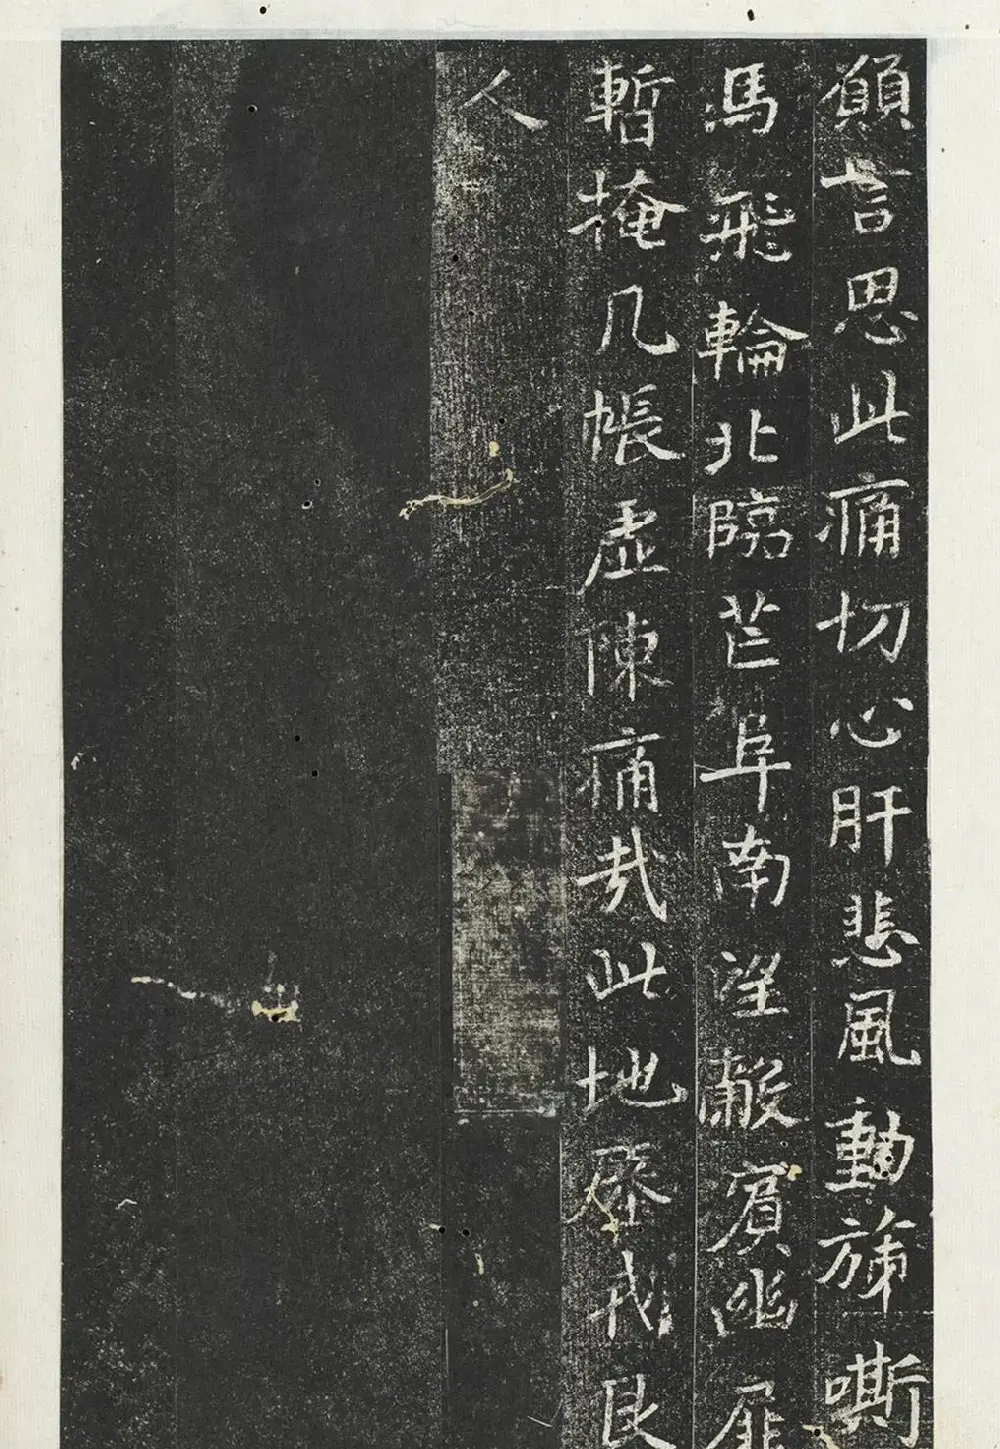 願言思此痛切心肝悲風動旆嘶
馬飛輪北臨芒阜南望濱幽扉
暫掩几帳虛陳痛哉此地我良
人